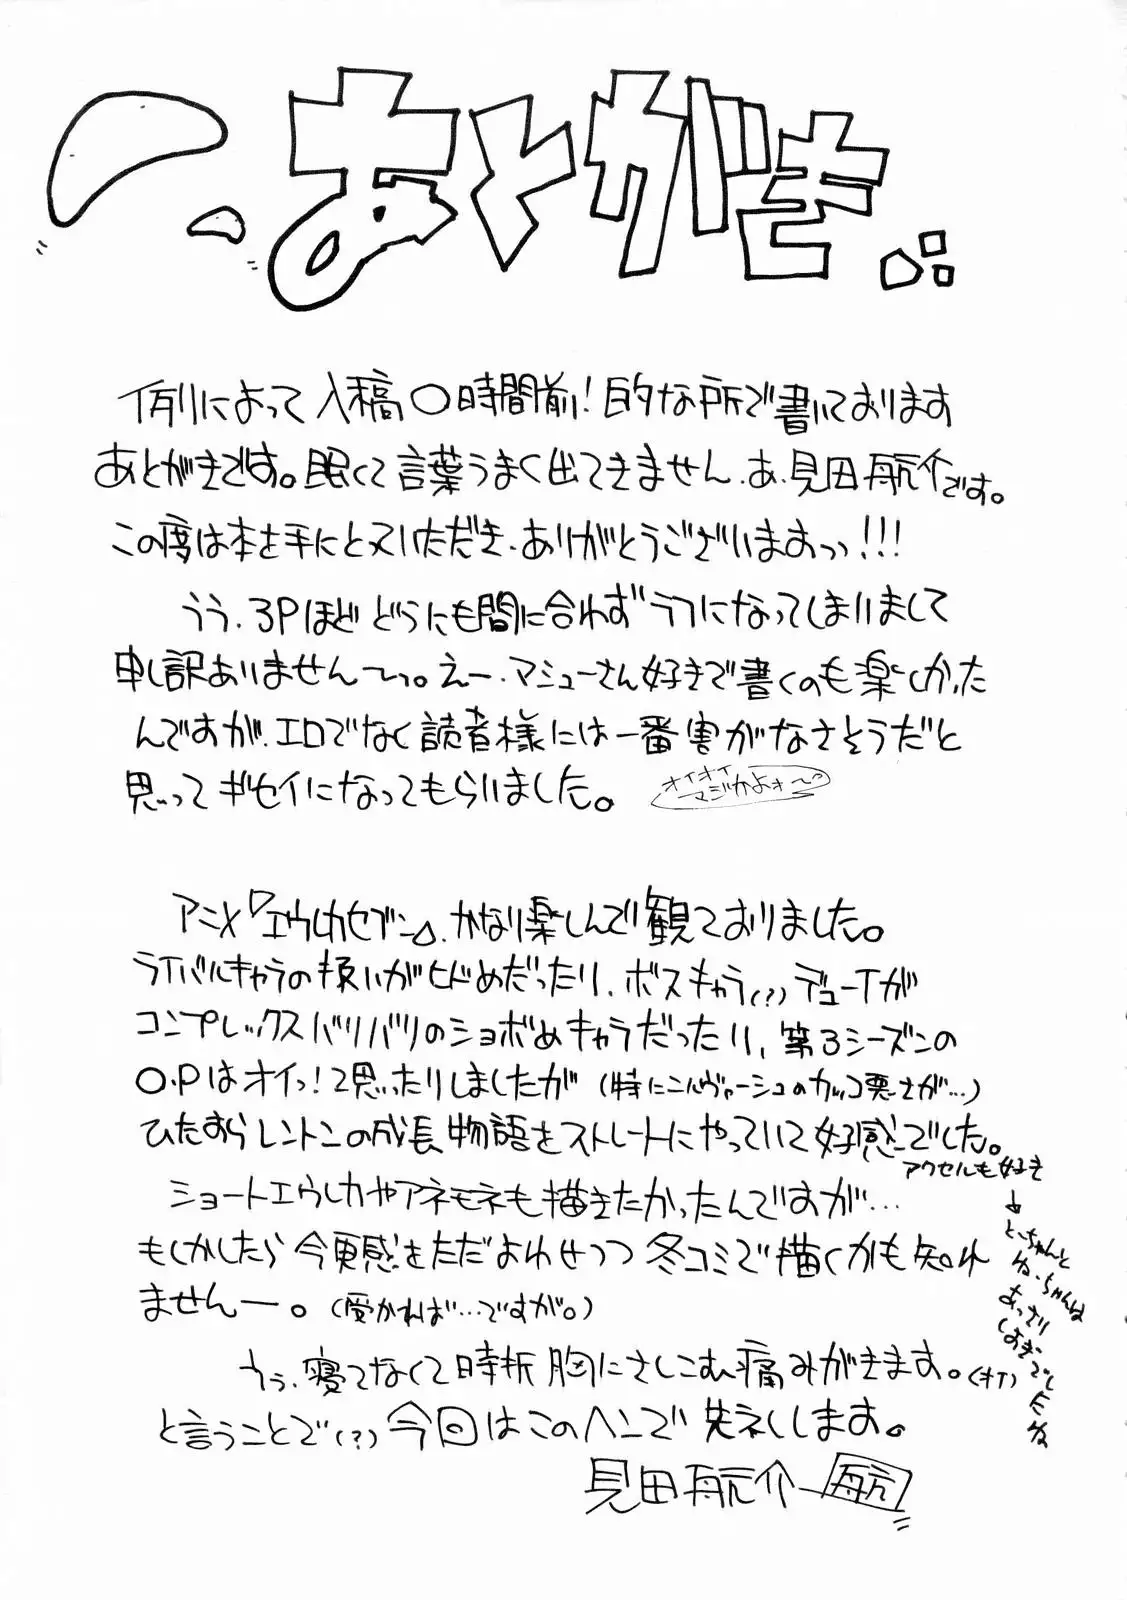 あとがき
例によって入稿〇時間前!的な所で書いております
あとがきです。眠くて言葉うまく出てきません.あ.見田航介です。
この度は本を手にとっていただき.ありがとうございますおっっ!!!
うう.3Pほどどうにも間に合わずラフになってしまいまして
申し訳ありません〜っ。えー.マシューさん好きで書くのも楽しかった
んですが.エロでなく読者様には一番害がなさそうだと
思ってギセイになってもらいました。
オイオイ
マジかよォ〜。
アニメ『エウレカセブン』.かなり楽しんで観ておりました。
ライバルキャラの扱いがヒドめだったり、ボスキャラ(?)デューイが
コンプレックスバリバリのショボめキャラだったり、第3シーズンの
O.Pはオイっ!と思ったりしましたが(特にニルヴァーシュのカッコ悪さが…)
ひたすらレントンの成長物語をストレートにやっていて好感でした。
アクセルも好き
→とーちゃんと
ねーちゃんは
あっさり
しすぎ
ショートエウレカやアネモネも描きたかったんですが…
もしかしたら今更感をただよわせつつ冬コミで描くかも知れ
ませんー。(受かれば…ですが。)
うぅ.寝てなくて時折胸にさしこむ痛みがきます。(オイ)
と言うことで(?)今回はこのヘンで失礼します。
見田航介
航